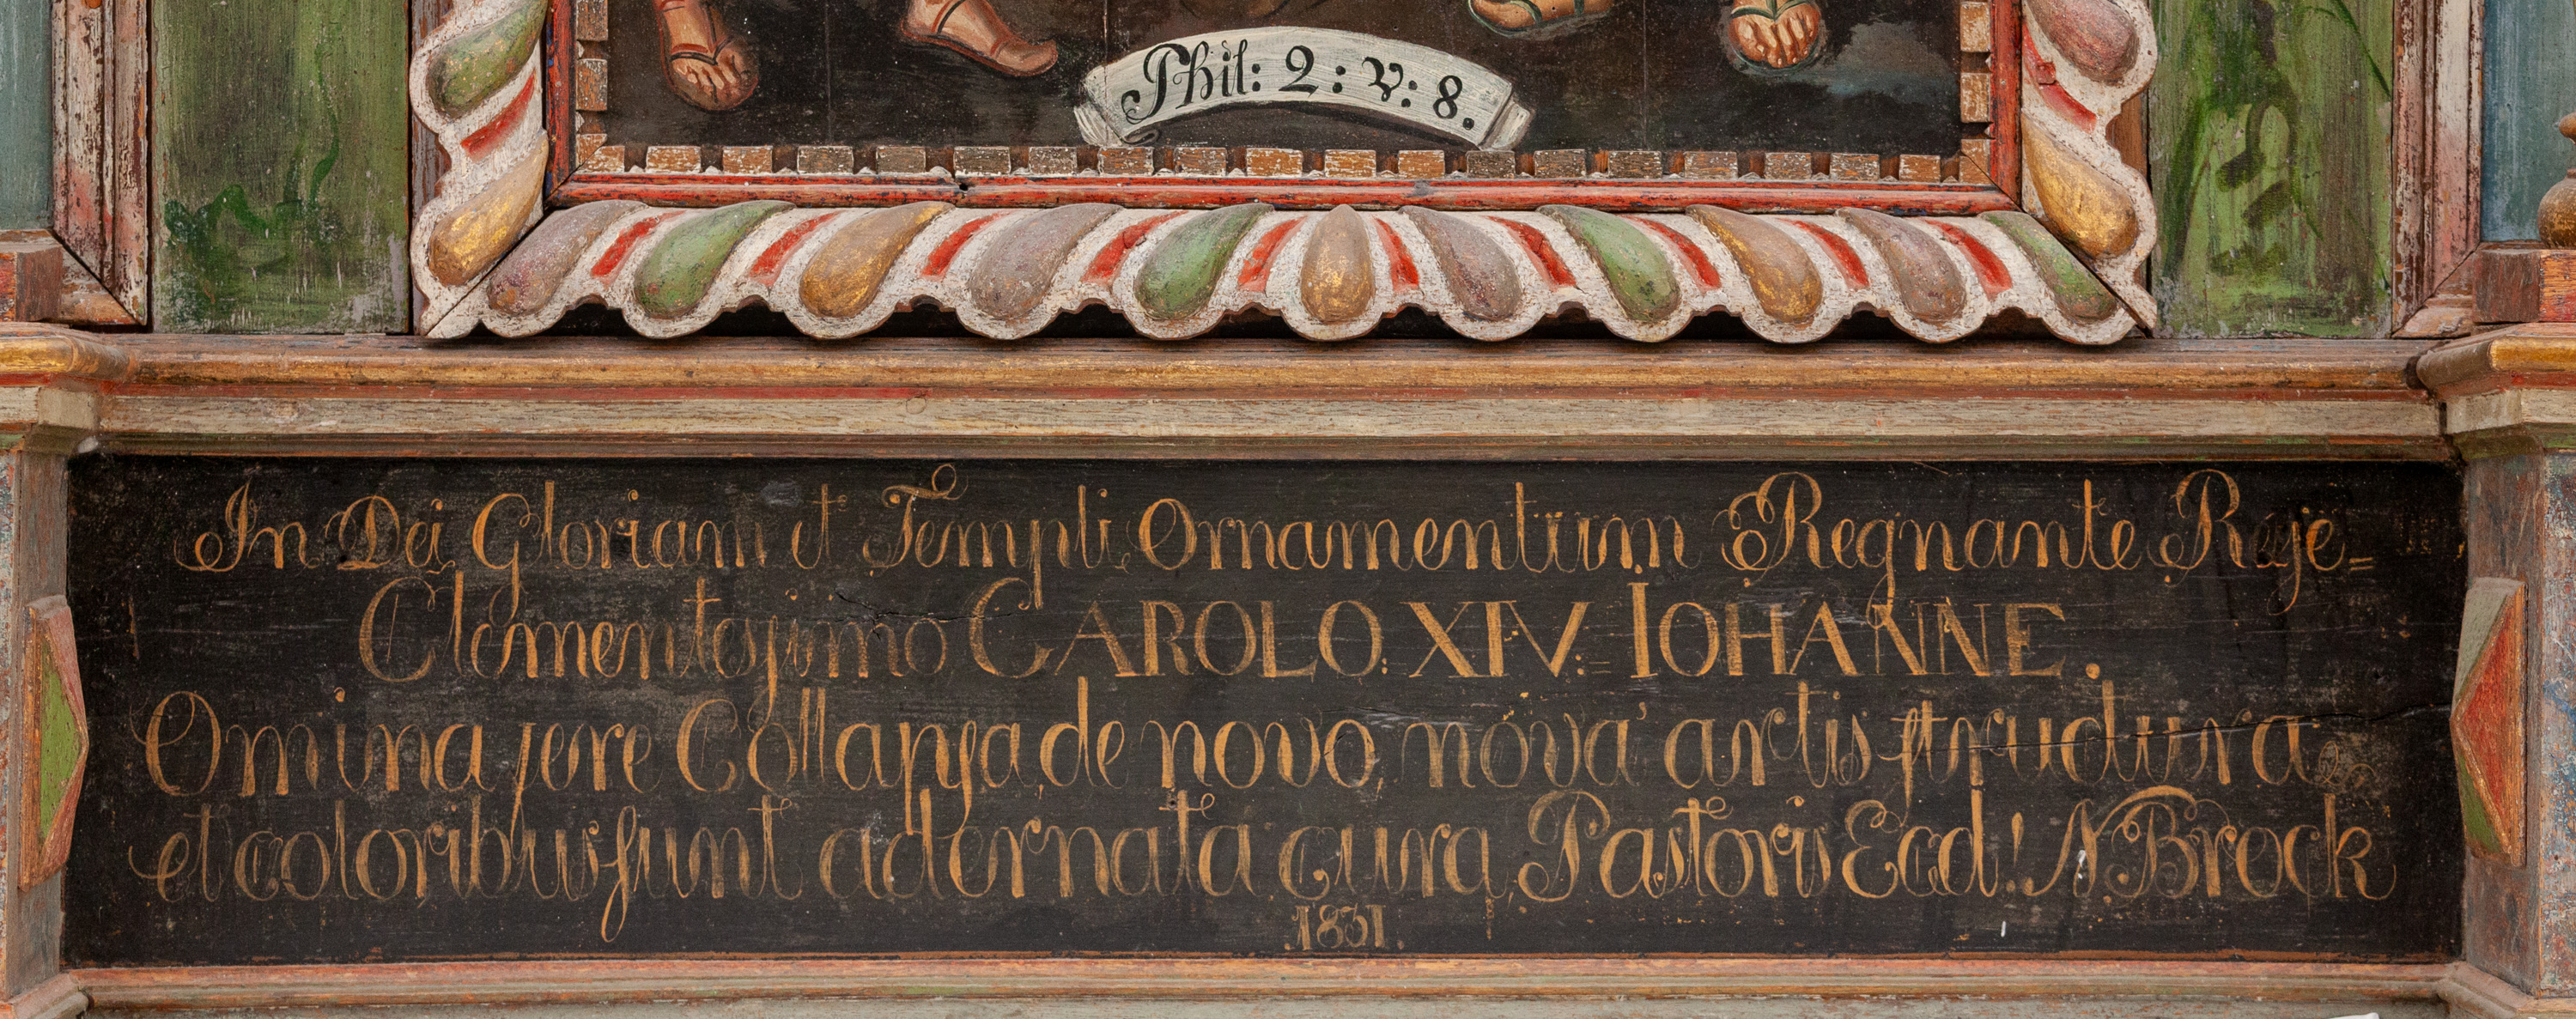 Phil: 2: V: 8.
In Dei Gloriam et Templi Ornamentum Regnante Reje=
Clementesjimo CAROLO: XIV:= IOHANNE.
Omina fere Collapsa de novo, nova artis structura
et coloribus sunt adernata cura Pastoris Eccl! N Brock
1831.